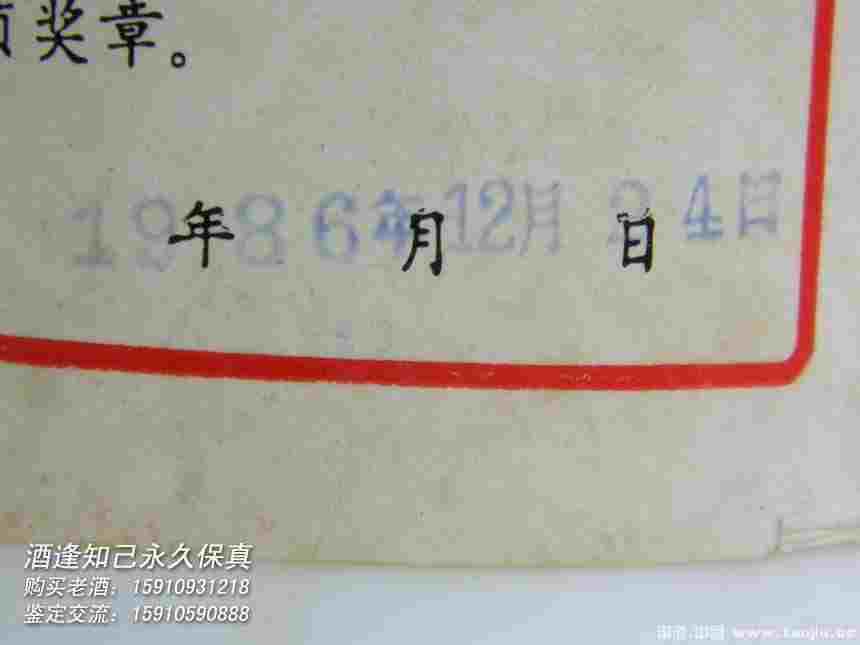 奖章。
1986年12月24日
年 月 日
酒逢知己永久保真
购买老酒：15910931218
鉴定交流：15910590888